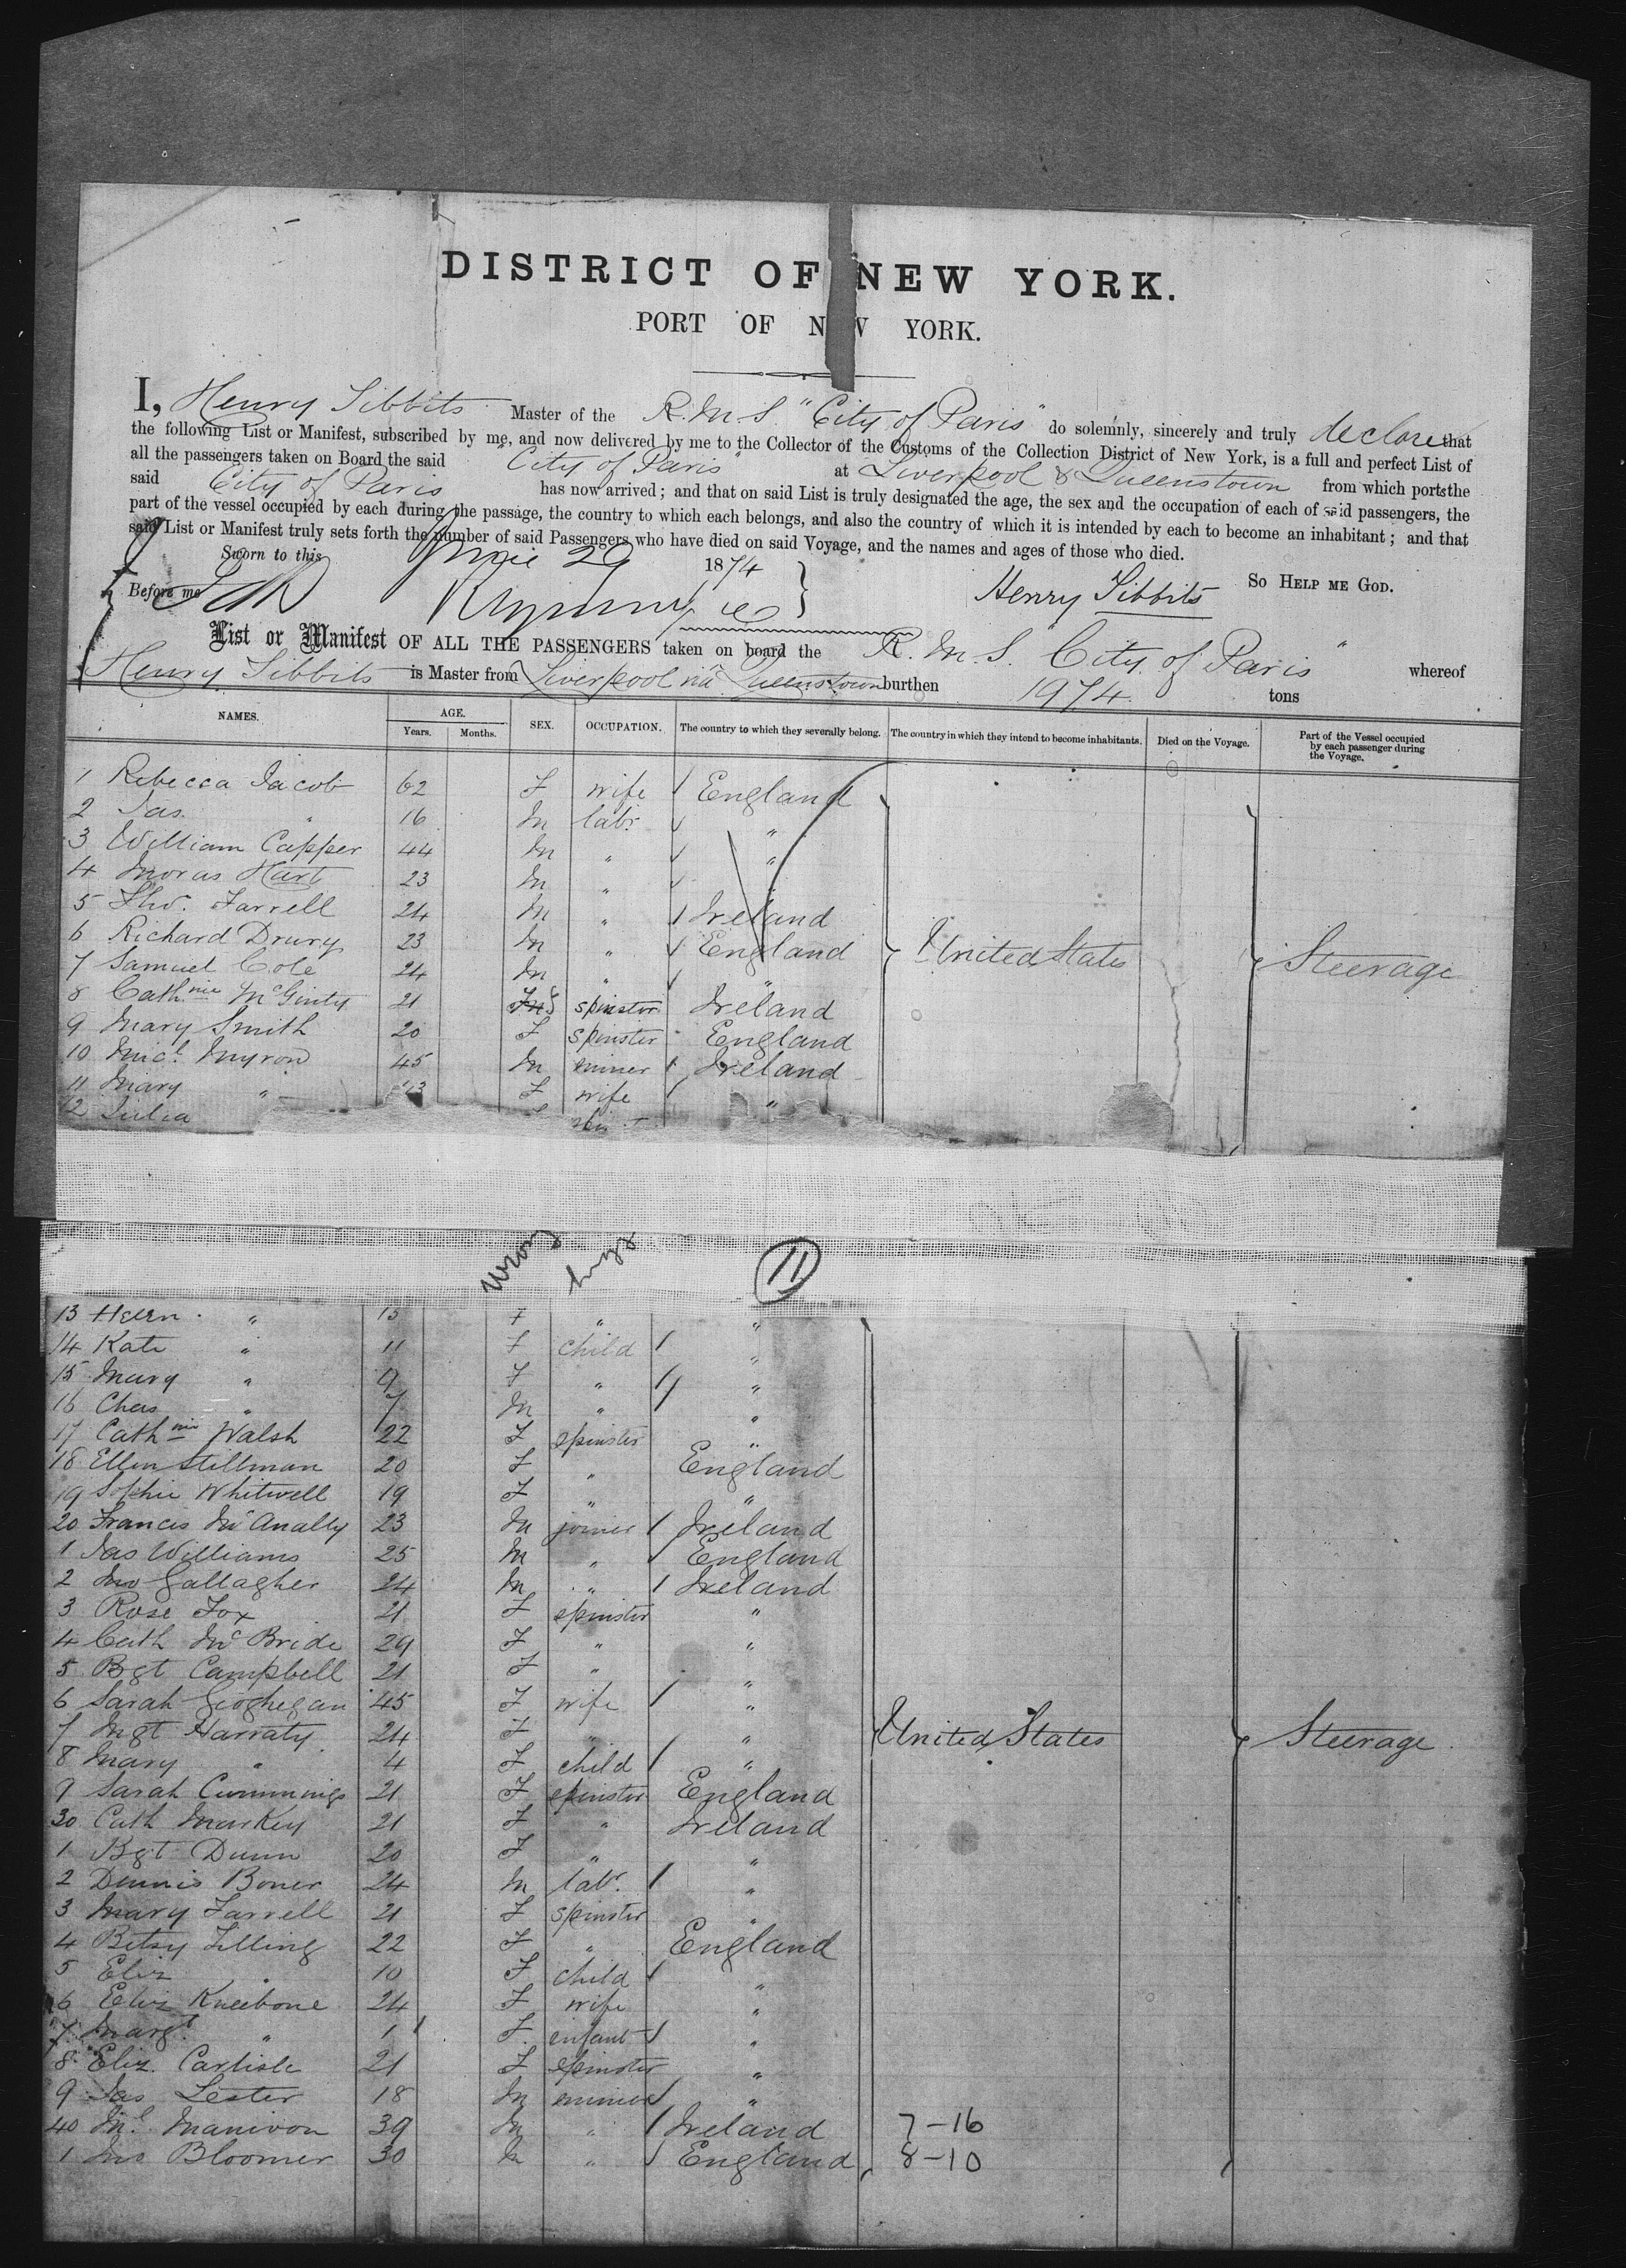 DISTRICT OF NEW YORK.
PORT OF N W YORK.
I, Henry Tibbits Master of the R.M.S. "City of Paris" do solemnly, sincerely and truly declare that
the following List or Manifest, subscribed by me, and now delivered by me to the Collector of the Customs of the Collection District of New York, is a full and perfect List of
all the passengers taken on Board the said "City of Paris" at Liverpool & Queenstown from which ports the
said City of Paris has now arrived; and that on said List is truly designated the age, the sex and the occupation of each of said passengers, the
part of the vessel occupied by each during the passage, the country to which each belongs, and also the country of which it is intended by each to become an inhabitant; and that
said List or Manifest truly sets forth the number of said Passengers who have died on said Voyage, and the names and ages of those who died.
Sworn to this June 29 1874 So HELP ME GOD.
Before me Henry Tibbits
List or Manifest OF ALL THE PASSENGERS taken on board the R.M.S. City of Paris" whereof
Henry Tibbits is Master from Liverpool via Queenstown burthen 1974 tons
NAMES. AGE. Years. Months. SEX. OCCUPATION. The country to which they severally belong. The country in which they intend to become inhabitants. Died on the Voyage. Part of the Vessel occupied by each passenger during the Voyage.
1 Rebecca Jacob 62 F wife England
2 Jas. " 16 M labr "
3 William Capper 44 M " "
4 Hart 23 M "
5 Farrell 24 M " Ireland
6 Richard Drury 23 M " England United States Steerage
7 Samuel Cole 24 M " "
8 Cathnie McGinty 21 F spinster Ireland
9 Mary Smith 20 F spinster England
10 Micl Myron 45 M miner Ireland
11 Mary " 43 F wife "
12 Julia
wrong
11
13 Hellen " 15 F " "
14 Kate " 11 F child "
15 Mary " 9 F " "
16 Chas " 7 M " "
17 Cathnie Walsh 22 F spinster "
18 Ellen Stillman 20 F " England
19 Sophie Whitwell 19 F " "
20 Francis McAnally 23 M joiner Ireland
1 Jas Williams 25 M " England
2 Jno Gallagher 24 M " Ireland
3 Rose Fox 21 F spinster "
4 Cath McBride 29 F " "
5 Bgt Campbell 21 F " "
6 Sarah Geoghegan 45 F wife "
7 Mgt Harraty 24 F " " United States Steerage
8 Mary " 4 F child "
9 Sarah Cummings 21 F spinster England
30 Cath Markey 21 F " Ireland
1 Bgt Dunn 20 F " "
2 Dennis Boner 24 M labr. "
3 Mary Farrell 21 F spinster "
4 Betsy Tilling 22 F " England
5 Eliz " 10 F child "
6 Eliz Kneebone 24 F wife "
7 Margt " 1 F infant "
8 Eliz. Carlisle 21 F spinster "
9 Jas Lester 18 M miner "
40 Ml Manivon 39 M " Ireland 7-16
1 Jno Bloomer 30 M " England 8-10